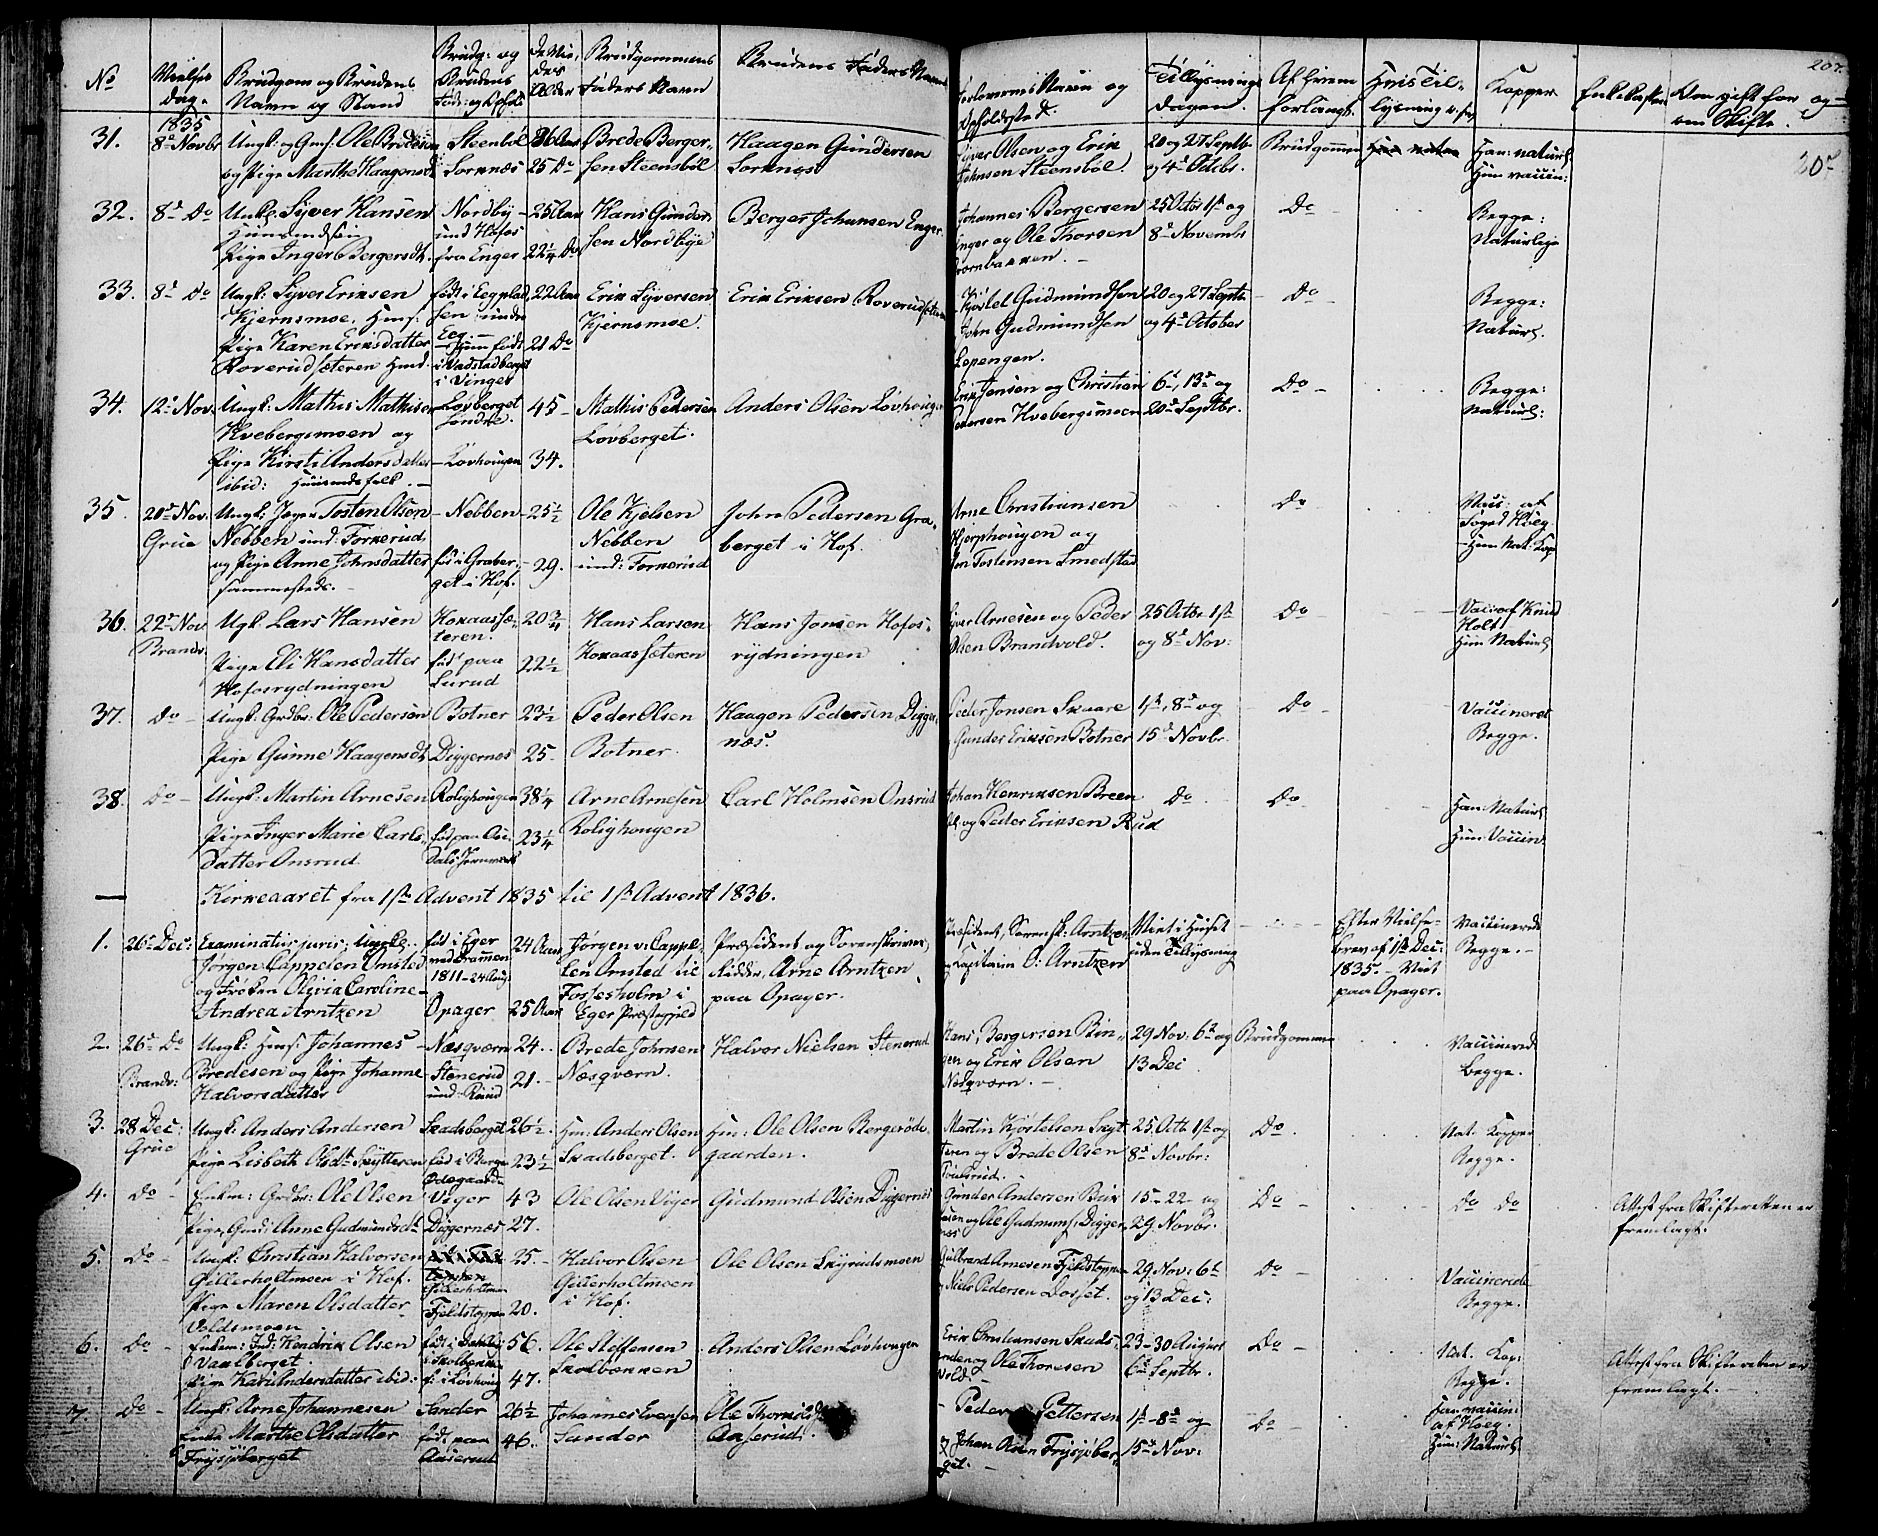 207.
No
Vielses
Dag.
Brudgom og Brudens
Navn og Stand
Brudg: og
Brudens
Føde: og Opholds
De Vie,
des
Alder
Brudgommens
Faders Navn
Brudens Faders Navn
Forlovernes Navn og
Opholdssted.
Tillysnings
Dagen.
Af hvem
forlangt.
Hvis Til-
lysning
Kopper
Enkekassen
Om gift før og
om Skifte.
307
31.
1835
8de Novbr
Ungk: og Gmf. Ole Bredesen
og Pige Marthe Haagensdt
Steenbøl
Sorknæs
26 Aar
25 Do
Brede Berger-
sen Steensbøl
Haagen Gundersen
Sorknæs
Syver Olsen og Erik
Johnsen Steensbøl.
20 og 27 Septb
og 4de Octbr.
Brudgommen
Han: naturl.
Hun vaccin:
32.
8de Do
Ungk. Syver Hansen
Huusmandssøn
Pige Inger Bergersdt.
Nordby
und Hofos
fra Enger
25 Aar
22 1/4 Do
Hans Gunder-
sen Nordbye
Berger Johansen Enger.
Johannes Bergersen
Enger og Ole Thorsen
25 Octbr 1ste og
8de Novembr
Do
Begge:
Naturlige
33.
8de Do
Ungk: Syver Eriksen
Kjernsmoe, Huus:
Pige Karen Eriksdatter
Roverudsæteren Huusd.
født i Eegplad
sen under
Eeg
Hun født
i Vadstadberget
i Vinger
22 Aar
21 Do
Erik Syversen
Kjernsmoe.
Erik Eriksen Roverudsæteren
Kjøstel Gudmundsen
John Gudmundsen
Lopengen.
20 og 27 Septr
og 4de October
Do
Begge:
Naturl.
34.
12te Nov.
Ungk: Mathis Mathisen
Hvebergsmoen og
Pige Kirsti Andersdatter
ibid: Huusmandsfolk.
Løvberget
Søndre.
Løvhougen
45
34.
Mathis Pedersen
Løvberget.
Anders Olsen Løvhoug
Erik Jensen og Christian
Pedersen Hvebergsmoen
6te, 13de og
20de Septbr.
Do
Begge:
Naturl:
35.
20de Nov.
Grue
Ungk: Jæger Tosten Olsen
Nebben und: Forkerud
og Pige Anne Johnsdatter
sammesteds.
Nebben
fød i Graber-
get i Hof.
25 1/2
29.
Ole Kjelsen
Nebben
und: Forkerud
John Pedersen Gra-
berget i Hof.
Arne Christiansen
Hjerphougen og
Jon Tostensen Smedstad
Do
Vac: af
Foged Høeg
Hun Nat: Kop
36.
22de Nov
Brandv.
Ugk: Lars Hansen
Pige Eli Hansdatter
Hofosrydningen
Kokaassæ-
teren.
fød paa
Lurud
20 3/4
22 1/2
Hans Larsen
Kokaassæteren
Hans Jonsen Hofos-
rydningen
Syver Arnesen og Peder
Olsen Brandvold.
25 Octbr 1ste
og 8de Nov:
Do
Vac: af Knud
Holt
Hun Naturl
37.
Do
Ungk: Grdbr: Ole Pedersen
Pige Gunne Haagensdt
Botner
Diggernes
23 1/2
25
Peder Olsen
Botner.
Haagen Pedersen Digger-
næs.
Peder Jonsen Skaare
Gunder Erikssen Botner
1ste, 8de og
15de Novbr.
Do
Vaccineret
Begge.
38.
Do
Ungk: Martin Arnesen
Pige Inger Marie Carls-
datter Onsrud
Rolighougen
fød paa Ou-
dals Jernværk
38 1/4
23 1/4
Arne Arnesen
Rolighougen
Carl Holmsen Onsrud
Johan Henriksen Breen
og Peder Eriksen Rud
Do
Do
Han: Naturl.
Hun: Vaccin:
Kirkeaaret fra 1ste Advent 1835 til 1ste Advent 1836.
1.
26de Dec:
Examinatus juris; Ungk:
Jørgen Cappelen Omsted
og Frøken Olivia Caroline
Andrea Arntzen
fød i Eger
ved Dramen
1811-24 Aug.
Opager
24 Aar
25 Aar
Jørgen v: Cappe-
len Omsted til
Fossesholm i
Eger Præstegjeld
Præsident og Sorenskriver,
Ridder, Arne Arntzen
paa Opager.
Præsident, Sorensk. Arntzen
Capitain O: Arntzen
Viet i Huset
uden Tillysning
Efter Vielse-
brev af 1ste Dec:
1835. - Viet
paa Opager.
Vaccinerede
Begge.
2.
26de Do
Brandv:
Ungk: Huus: Johannes
Bredesen og Pige Johanne
Halvorsdatter
Næsqværn
Stenerud
und: Ruud
24.
21.
Brede Johnsen
Næsqværn.
Halvor Nielsen Stenerud
Hans Bergersen Bin-
gen og Erik Olsen
Nesqværn.
29 Nov: 6te og
13 Dec
Brudgommen
Vaccinered
Begge.
3.
28 Dec:
Grue
Ungk: Anders Andersen
Pige Lisbeth Olsdt Skytteren
Skadsberget
fød i Berger
Ødegaarden
26 1/2.
23 1/2
Hm: Anders Olsen
Skadsberget.
Hm: Ole Olsen Bergerøde-
gaarden.
Martin Kjøstelsen Skyt-
teren og Brede Olsen
25. Octb 1ste og
8de Novbr:
Do
Nat: Kopper
Begge.
4.
Do
Enkem: Grdbr: Ole Olsen
Pige, Guds: Anne Gudmundsdt
Viger
Diggernæs
43
27.
Ole Olsen Viger
Gudmund Olsen Diggernæs
Gunder Andersen Buk
og Ole Gudmunds: Digger-
næs
15 - 22 - og
29 Novbr.
Do
Do Do
Attest fra Skifteretten er
fremlagt.
5.
Do
Ungk: Christian Halvorsen
Gillerholtmoen i Hof.
Pige Maren Olsdatter
Voldsmoen
Gillerholtmoen
Fjeldstoppen
25.
20.
Halvor Olsen
Gillerholtmoen
i Hof.
Ole Olsen Skyrudsmoen
Gulbrand Arnesen Fjeldstoppen
Niels Pedersen Dosset.
29 Nov: 6te
og 13 Dec:
Do
Vaccinerede
Begge.
6.
Do
Enkem: Ind: Hendrik Olsen
Vaalberget.
Pige Kari Andersdatter ibid:
f: i Løvhoug
56.
47.
Ole Steffensen
Skolbækken
Anders Olsen Løvhougen
Erik Christiansen Skads-
enden og Ole Thoresen
Vold.
23 - 30 August
6te Septbr.
Do
Nat. Kop:
Begge.
Attest fra Skifteretten er
fremlagt.
7.
Do
Ungk: Arne Johannesen
Enke Marthe Olsdatter
Frysjøberget
Sander
født paa
Aaserud
26 1/2
46.
Johannes Evensen
Sander
Ole
Aaserud.
Peder Pettersen
og Johan Olsen Frysjøber-
get.
1ste - 8de og
15de Nov:
Do
Han vaccin:
af Høeg.
Hun: Naturl.